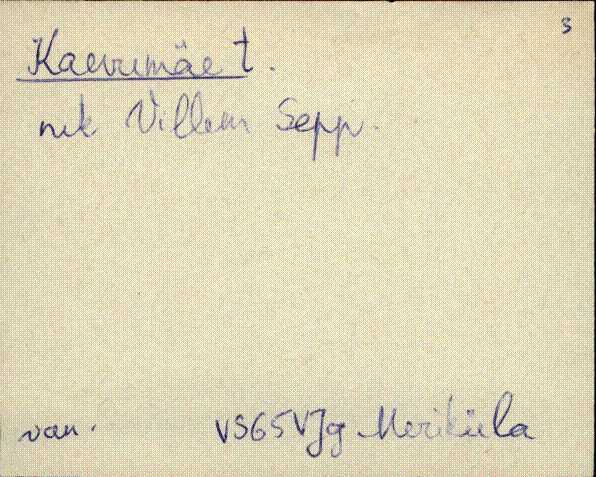 3
Kaevumäe t.
nek Villem Sepp.
van.
VS65 VJg Meriküla